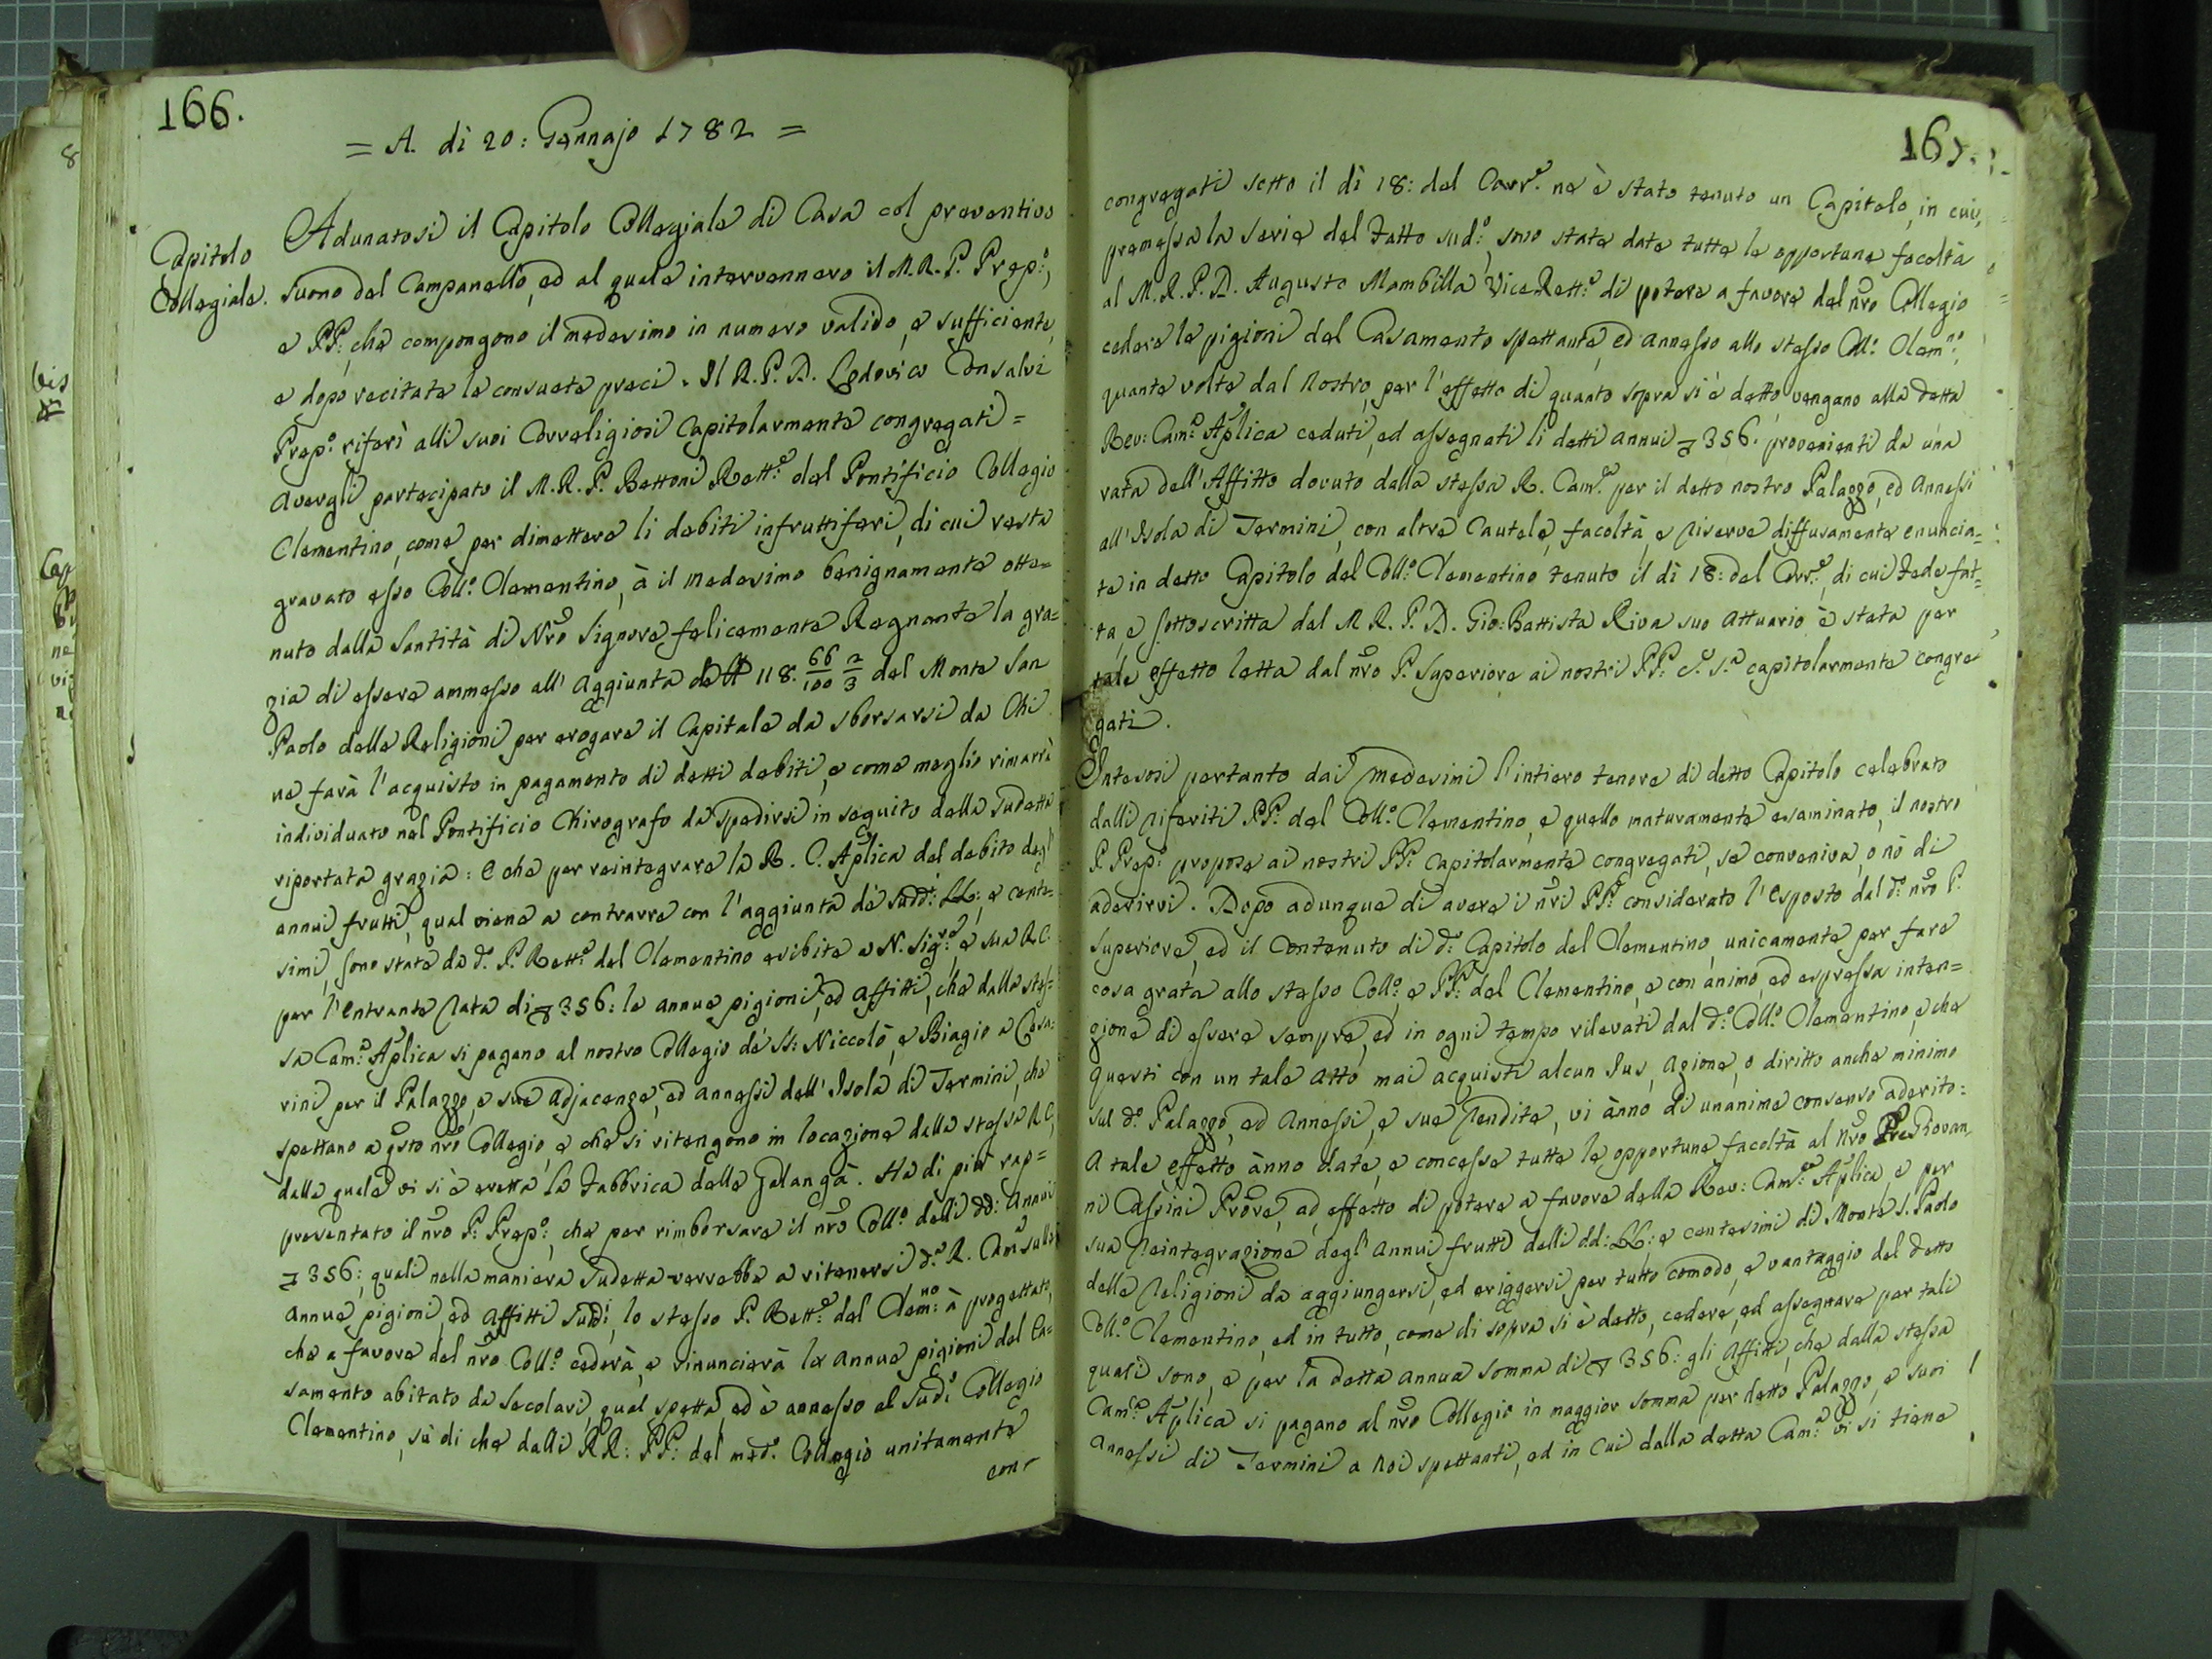 166.
= A. di 20: Gennajo 1782 =
Capitolo
Collegiale.
Adunatosi il Capitolo Collegiale di Casa col preventivo
suono del Campanello, ed al quale intervennero il M. R. P. Prep.º,
e PP: che compongono il medesimo in numero valido, e sufficiente,
e dopo recitate le consuete preci. Il R. P. D. Lodovico Consalvi
Prep.º riferì alli suoi Correligiosi Capitolarmente congregati =
avergli partecipato il M. R. P. Bettoni Rett.e del Pontificio Collegio
Clementino, come per dimettere li debiti infruttiferi, di cui resta
gravato esso Coll.º Clementino, à il medesimo benignamente otte=
nuto dalla Santità di Nrõ Signore felicemente Regnante la gra=
zia di essere ammesso all' aggiunta di 118. 66/100 2/3 del Monte San
Paolo delle Religioni per erogare il Capitale da sborsarsi da Chi
ne farà l'acquisto in pagamento di detti debiti, e come meglio rimarrà
individuato nel Pontificio Chirografo da spedirsi in seguito della sudetta
riportata grazia: e che per reintegrare la R. C. Aplica del debito degl'
annui frutti, qual viene a contrarre con l'aggiunta dé sudd: LL: e cente=
simi, sono state da d.º P. Rett.e del Clementino esibite a N. Sig.re, e sua R. C.
per l'entrante rata di 356: le annue pigioni, ed affitti, che dalla stes=
sa Cam.a Aplica si pagano al nostro Collegio dé SS: Niccolò, e Biagio a Cesa=
rini per il Palazzo, e sue Adjacenze, ed annessi dell' Isola di Termini, che
spettano a qsto nrõ Collegio, e che si ritengono in locazione dalla stessa R. C.,
dalla quale vi si è eretta la Fabbrica della Galangà. Ha di più rap=
presentato il nrõ P. Prep.º, che per rimborsare il nrõ Coll.º delli dd: annui
356: quali nella maniera sudetta verrebbe a ritenersi d.a R. Cam.a sulle
annue pigioni, ed affitti sudd.i, lo stesso P. Rett.e del Clem.no à progettato,
che a favore del nrõ Coll.º cederà, e rinuncierà le annue pigioni del Ca=
samento abitato da Secolari, qual spetta, ed è annesso al sud.º Collegio
Clementino, sù di che dalli RR: PP: del med.º Collegio unitamente
con-
167.
congregati sotto il dì 18: del Corr.e ne è stato tenuto un Capitolo, in cui,
premessa la serie del Fatto sud.º, sono state date tutte le opportune facoltà
al M. R. P. D. Augusto Mambilla ViceRett.e di potere a favore del nrõ Collegio
cedere le pigioni del Casamento spettante, ed annesso allo stesso Coll.º Clem.no,
quante volte dal nostro, per l'effetto di quanto sopra si è detto, vengano alla detta
Rev: Cam.a Aplica ceduti, ed assegnati li detti annui 356. provenienti da una
rata dell' Affitto dovuto dalla stessa R. Cam.a per il detto nostro Palazzo, ed annessi
all' Isola di Termini, con altre Cautele, facoltà, e riserve diffusamente enuncia=
te in detto Capitolo del Coll.º Clementino tenuto il dì 18: del Corr.e, di cui Fede fat=
ta, e sottoscritta dal M. R. P. D. Gio: Battista Riva suo Attuario è stata per
tale effetto letta dal nrõ P. Superiore ai nostri PP: capitolarmente congre
gati.
Intesosi pertanto dai medesimi l'intiero tenore di detto Capitolo celebrato
dalli riferiti PP: del Coll.º Clementino, e quello maturamente esaminato, il nostro
P. Prep.º propose ai nostri PP: Capitolarmente congregati, se conveniva, o nò di
aderirvi. Dopo adunque di avere i nrĩ PP: considerato l'esposto dal d.º nrõ P.
Superiore, ed il contenuto di d.º Capitolo del Clementino, unicamente per fare
cosa grata allo stesso Coll.º, e PP: del Clementino, e con animo, ed espressa inten=
zione di essere sempre, ed in ogni tempo rilevati dal d.º Coll.º Clementino, e che
questi con un tale atto mai acquisti alcun Jus, azione, o diritto anche minimo
sul d.º Palazzo, ed annessi, e sue rendite, vi ànno di unanime consenso aderito:
A tale effetto ànno date, e concesse tutte le opportune facoltà al nrõ Pre Giovan
ni Cassini Prõre, ad effetto di potere a favore della Rev: Cam.a Aplica, e per
sua reintegrazione degl' annui frutti delli dd: LL: e centesimi di Monte S. Paolo
delle Religioni da aggiungersi, ed eriggersi per tutto comodo, e vantaggio del detto
Coll.º Clementino, ed in tutto, come di sopra si è detto, cedere, ed assegnare per tali
quali sono, e per la detta annua somma di 356: gli affitti, che dalla stessa
Cam.a Aplica si pagano al nrõ Collegio in maggior somma per detto Palazzo, e suoi
annessi di Termini a noi spettanti, ed in cui dalla detta Cam.a vi si tiene